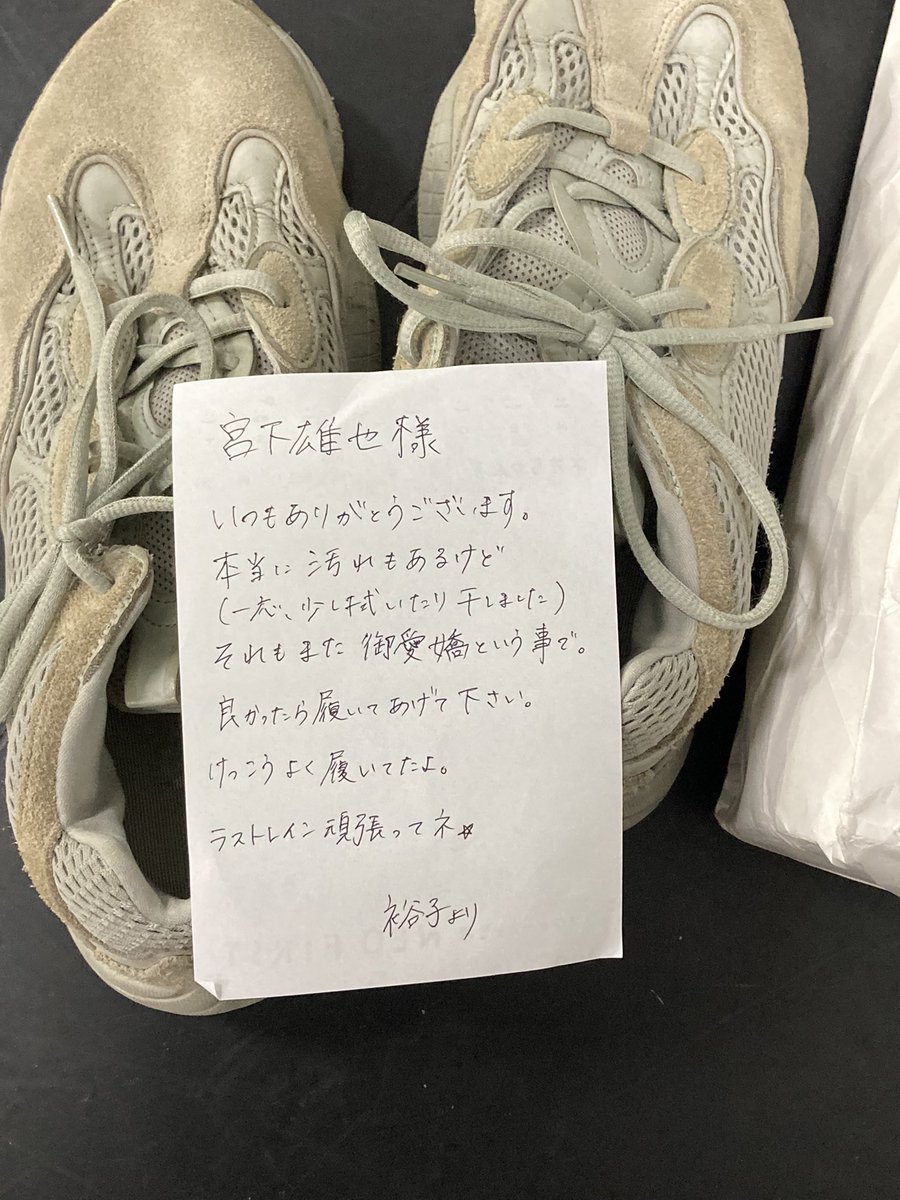 宮下雄也様
いつもありがとうございます。
本当に汚れもあるけど
(一応、少し拭いたり干しました)
それもまた御愛嬌という事で。
良かったら履いてあげて下さい。
けっこうよく履いてたよ。
ラストレイン頑張ってネ☆
裕子より